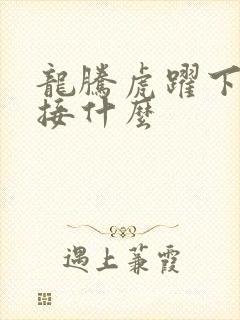 龍騰虎躍下
接什麼
遇上蒹霞